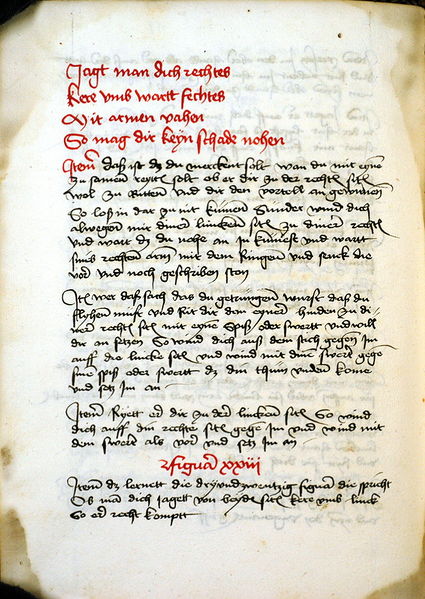 Jagt man dich rechtes
kere vmb wartt fechtes
Mit armen vahen
So mag dir keyn schade nohen
Item daß ist dz du mercken solt wan du mit eyne
zu samen reytest solt ob er dir zu der rechten sytt
wol zu Ritten vnd dir den vorteil an gewinnen
So loß in dar zu nit kumen Sunder wind dich
alwegen mit diner lincken sytt zu diner rechten
vnd wart dz du nohe an in kumest vnd wartt
sins rechten arm mit dem Ringen vnd senck die
vor vnd noch geschriben sten
Itē wer daß sach das du getzungen wurst daß du
flyhen must vnd Rit dir den eyner hinden zu di
ner rechten sytt mit eyne spiß oder swertt vnd will
dir an setzen So wind dich auß dem stich gegen im
auff die lincke sytt vnd wind mit dine swert gegē
sine spiß oder swertt dz din thum vnden kome
vnd setz im an
Item Rytt er dir zu der lincken sytt So wind
dich auff din rechte sytt gegē im vnd wind mit
dem swert als vor vnd setz im an
Figura xxiii
Item dz lernett die dryvndzwentzig figura die spricht
Ob man dich jagett von beyden sytt kere vmb linck
So er recht komptt